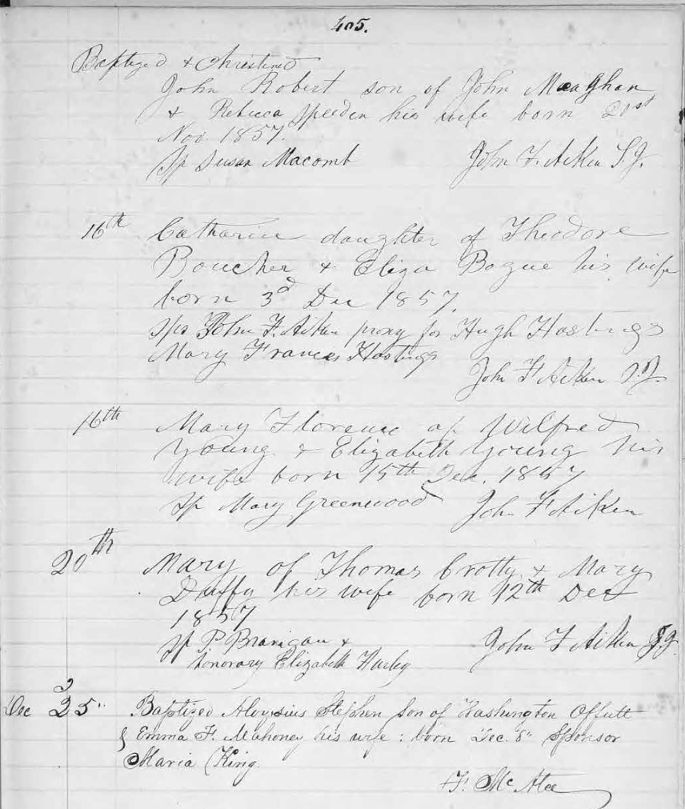 405.
Baptized & Christened
John Robert son of John Meaghan
& Rebecca Speeden his wife born 21st
Nov. 1857.
Sp Susan Macomb John F. Aiken S.J.
16th Catharine daughter of Theodore
Boucher & Eliza Bogue his wife
born 3d Dec 1857.
Sps John F. Aiken proxy for Hugh Hastings
Mary Frances Hastings
John F Aiken S.J.
16th Mary Florence of Wilfred
Young & Elizabeth Young his
wife born 15th Dec. 1857
Sp Mary Greenwood John F Aiken
20th Mary of Thomas Crotty & Mary
Duffy his wife born 12th Dec
1857
Sp P. Branigan &
honorary Elizabeth John F Aiken S.J.
Dec 25" Baptized Aloysius Stephen son of Washington Offutt
& Emma F. Mahoney his wife : born Dec. 8" Sponsor
Maria King.
F. Mc Atee